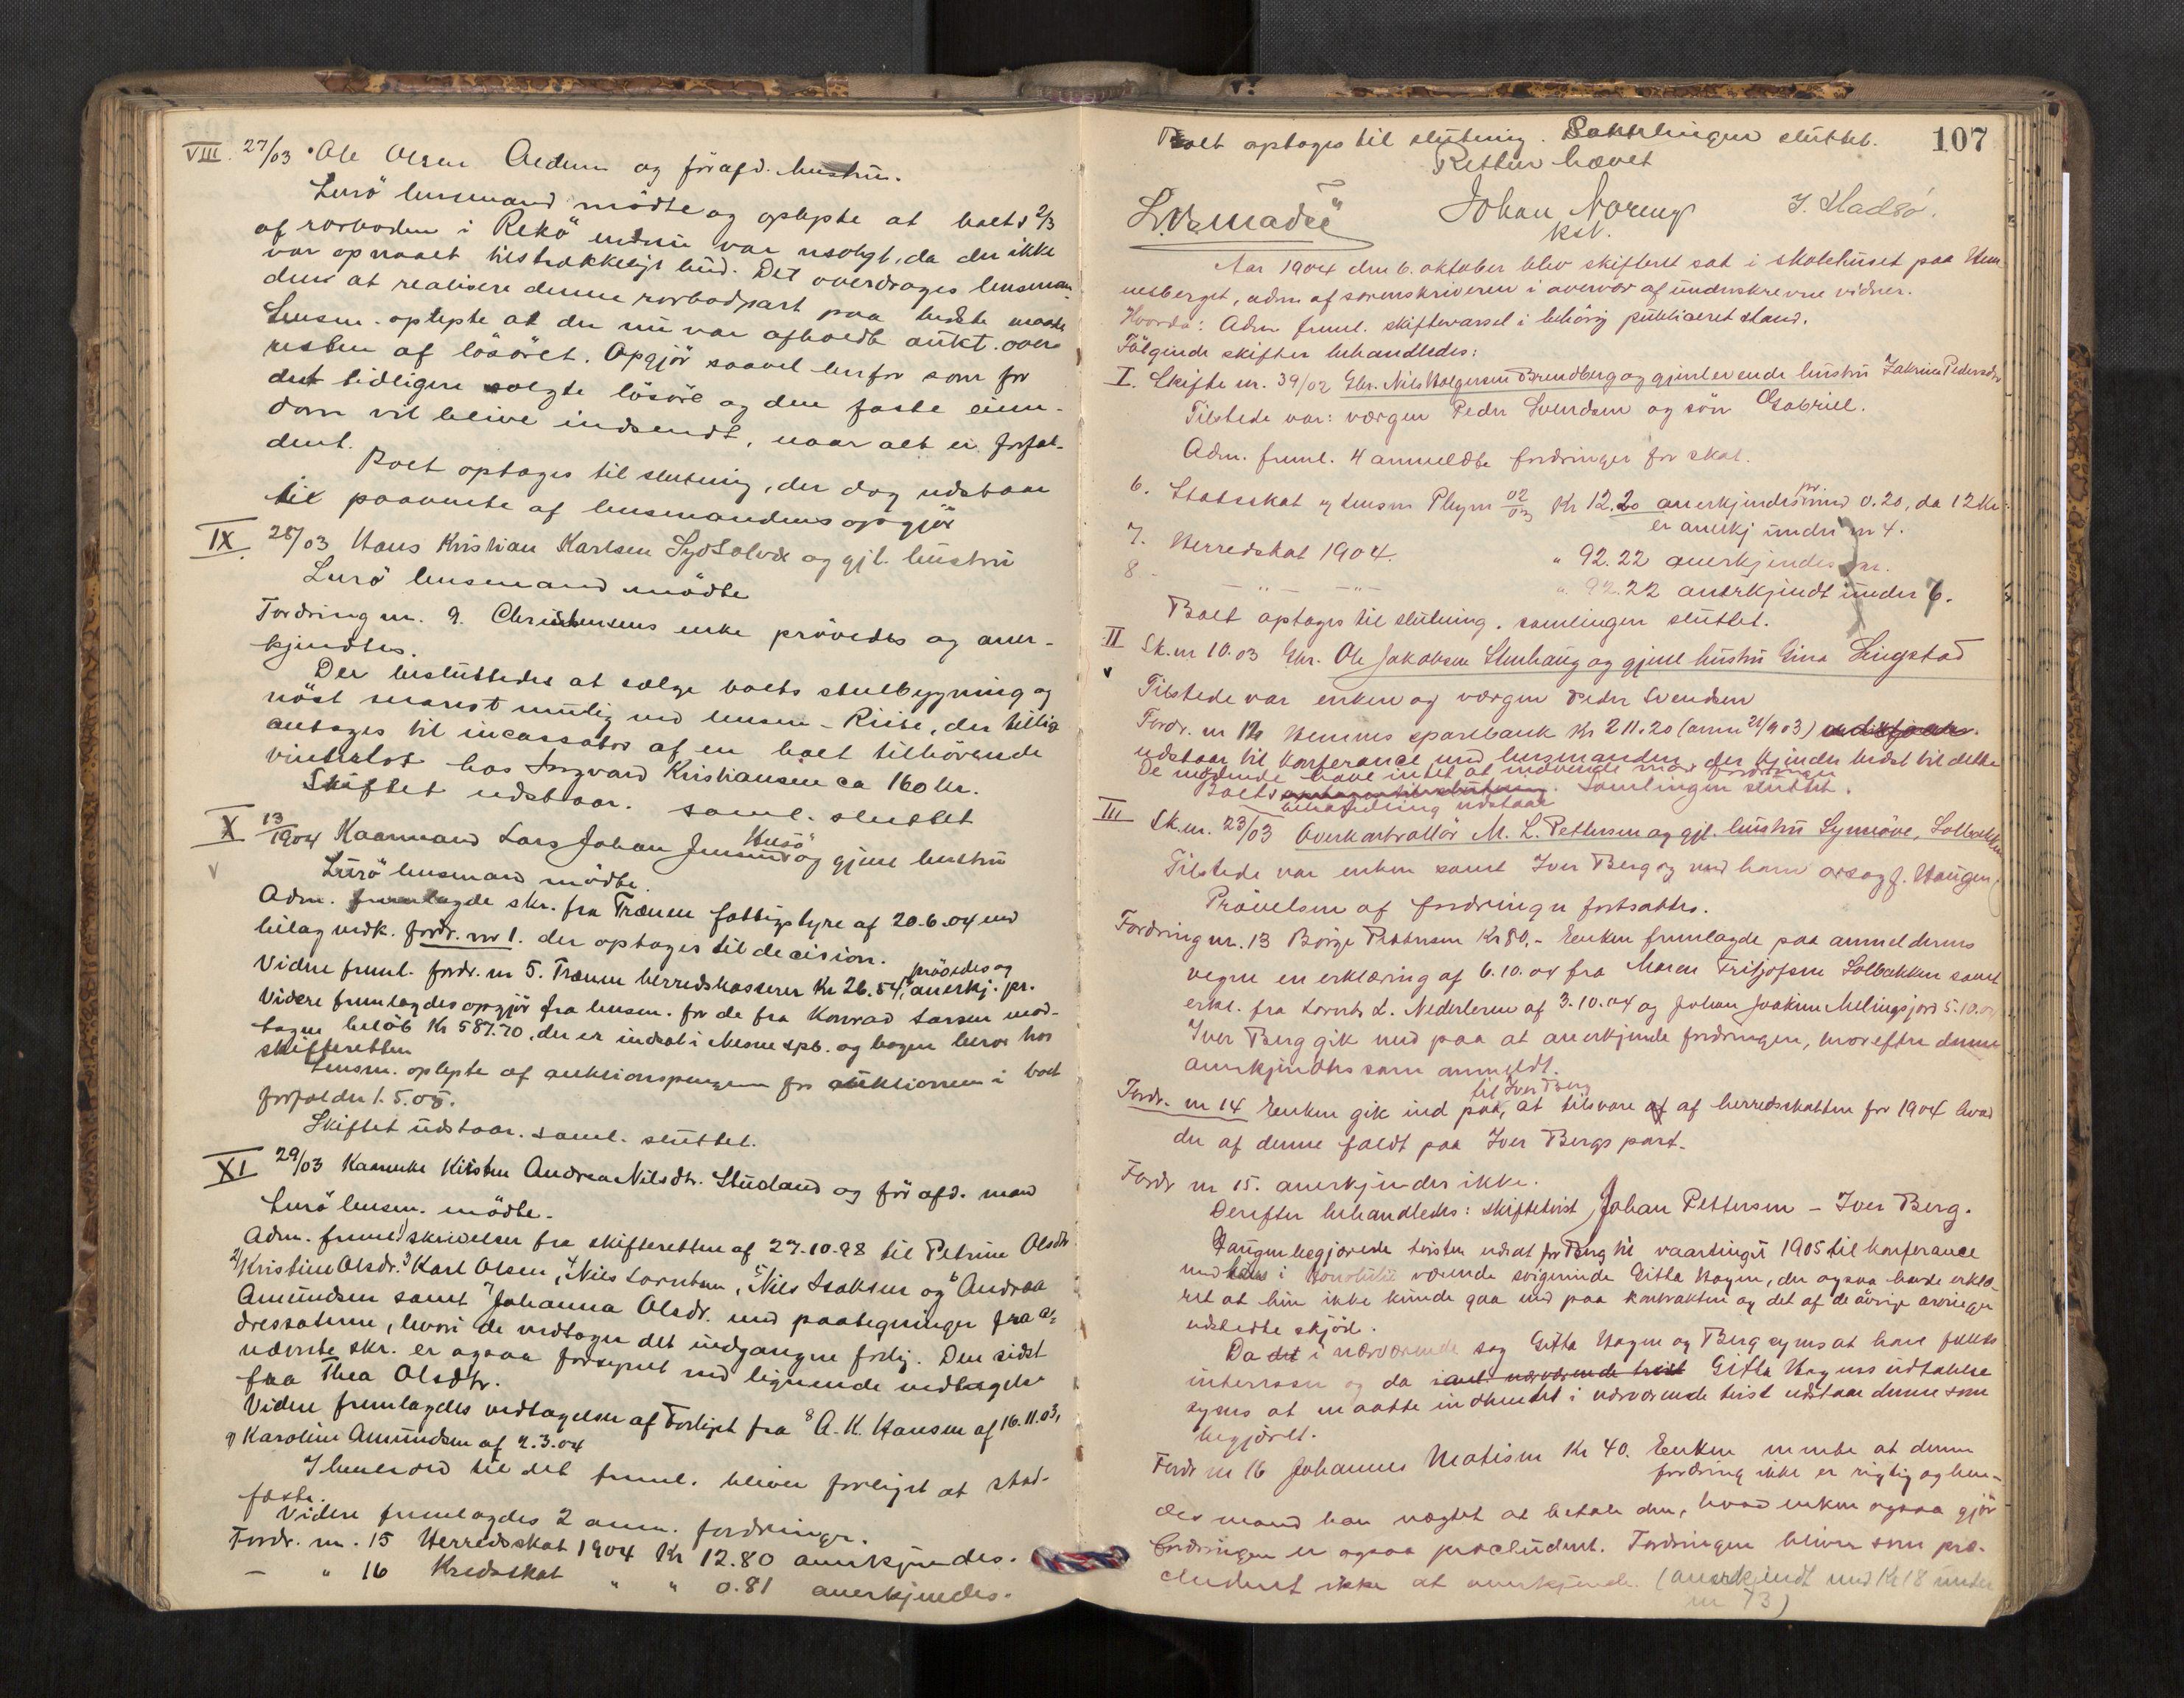 VIII. 27/03 Ole Olsen Aedum og förafd. hustru.
Lurö lensmand mödte og oplyste at boets 2/3
af rorboden i Rekö endnu var usolgt, da der ikke
var opnaaet tilstrækkeligt bud. Det overdroges lensman-
den at realisere denne rorbodpart paa bedste maade
Lensm. oplyste at der nu var afholdt aukt. over
resten af lösöret. Opgjör saavel herfor som for
det tidligere solgte lösöre og den faste eien-
dom vil blive indsendt, naar alt er forfal-
dent.
Boet optages til slutning, der dog udstaar
til paavente af lensmandens opgjör
IX. 28/03 Hans Kristian Karlsen Sydsolvær og gjl. hustru
Lurö lensmand mödte
Fordring nr. 9. Christensens enke prövedes og aner-
kjendtes.
Der besluttedes at sælge boets stuebygning og
nöst snarest mulig ved lensm. Riise, der tillige
antages til incassator af en boet tilhörende
vinterlot hos Ingvard Kristiansen ca 160 kr.
Skiftet udstaar. saml. sluttet
X 13/1904 Kaarmand Lars Johan Jensen Husö og gjenl hustru
Lurö lensmand mödte.
Adm. fremlagde skr. fra Trænen fattigstyre af 20.6.04 med
bilag vedk. fordr. nr 1. der optages til decision.
Videre freml. fordr. nr 5. Trænen herredskasserer Kr 26.54, prövedes og anerkj. pr.
Videre fremlagdes opgjör fra lensm. for de fra Konrad Larsen mod-
tagne belöb Kr 587.70, der er indsat i Nesne spb. og bogen beror hos
skifteretten
Lensm. oplyste at auktionspengene for auktionen i boet
forfalder 1.5.05.
Skiftet udstaar. saml. sluttet.
XI 29/03 Kaarenke Kirsten Andrea Nilsdtr. Studland og för afd. mand
Lurö lensm. mödte.
Adm. freml. 1) skrivelser fra skifteretten af 27.10.98 til Petrine Olsdtr
2) Kristine Olsdr. 3) Karl Olsen, 4) Nils Lorntsen, 5) Nils Isaksen og 6) Andrea
Amundsen samt 7) Johanna Olsdr. med paategninger fra a-
dressaterne, hvori de vedtager det indgangne forlig. Den sidst
nævnte skr. er ogsaa forsynet med lignende vedtagelse
fra Thea Olsdtr.
Videre fremlagdes vedtagelse af Forliget fra 8 A. K. Hansen af 16.11.03,
9) Karoline Amundsen af 2.3.04
I henhold til det freml. bliver forliget at stad-
fæste.
Videre fremlagdes 2 anm. fordringer.
Fordr. nr. 15 Herredsskat 1904 Kr 12.80 anerkjendes.
— " 16 Kredsskat " " 0.81 anerkjendes.
107
Boet optages til slutning. Samlingen sluttet.
Retten hævet
Johan Noreng
kst.
J. Hadsö.
Aar 1904 den 6. oktober blev skifteret sat i skolehuset paa Hem-
nesberget, adm. af sorenskriveren i overvær af underskrevne vidner.
Hvorda: Adm freml. skiftevarsel i behörig publiceret stand.
Fölgende skifter behandledes:
I. Skifte nr. 39/02 Gbr. Nils Holgersen Brendberg og gjenlevende hustru Jakrine Pedersdtr
Tilstede var: værgen Peder Svendsen og sön Gabriel.
Adm. freml. 4 anmeldte fordringer for skat.
6. Statsskat v/ lensm Pleym 02/03 Kr 12.20 anerkjendes pr. med 0.20, da 12 Kr.
er anerkj under nr 4.
7. Herredskat 1904. " 92.22 anerkjendes pr.
8 - " - - " - " 92.22 anerkjendt under 7.
Boet optages til slutning. samlingen sluttet.
II Sk. nr 10.03 Gbr. Ole Jakobsen Stenhaug og gjenl hustru Gina Lingstad
Tilstede var enken og værgen Peder Svendsen
Fordr. nr 12 Hemnes sparebank Kr 211.20 (anm 21/9 03)
udstaar til konferance med lensmanden, der kjender bedst til dette
De mödende have intet at indvende mod fordringen
Boets behandling udstaar. Samlingen sluttet.
III Sk. nr. 23/03 Overkontrollör M. L. Pettersen og gjl. hustru Synnöve, Solbakken
Tilstede var enken samt Iver Berg og med ham orsagf. Haugen.
Prövelsen af fordringer fortsattes.
Fordring nr. 13 Börge Pettersen Kr 80.- Enken fremlagde paa anmelderens
vegne en erklæring af 6.10.04 fra Maren Fritjofsen Solbakken samt
erkl. fra Lornts L. Nederleren af 3.10.04 og Johan Joakim Melingsjord 5.10.04
Iver Berg gik ind paa at anerkjende fordringen, hvorefter denne
anerkjendtes som anmeldt.
Fordr. nr 14 Enken gik ind paa, at tilsvare til Iver Berg af herredsskatten for 1904 hvad
der af denne faldt paa Iver Bergs part.
Fordr nr 15. anerkjendes ikke.
Derefter behandledes: skiftetvist Johan Pettersen – Iver Berg.
Haugen begjærede tvisten udsat for Berg til vaartinget 1905 til konferance
med hans i Honolulu værende svigerinde Gitta Hagen, der ogsaa havde erklæ-
ret at hun ikke kunde gaa ind paa kontrakten og det af de övrige arvinger
udstedte skjöde.
Da det i nærværende sag Gitta Hagen og Berg synes at have fælles
interesser og da saml. nærværende tvist Gitta Hagens udtalelse
synes at maatte indhentes i nærværende tvist udstaar denne som
begjæret.
Fordr nr 16 Johannes Matisen Kr 40. Enken mente at denne
fordring ikke er rigtig og hen-
des mand har nægtet at betale den, hvad enken ogsaa gjör
Fordringen er ogsaa præcluderet. Fordringen bliver som præ-
cluderet ikke at anerkjende. (anerkjendt med Kr 18 under
nr 73)